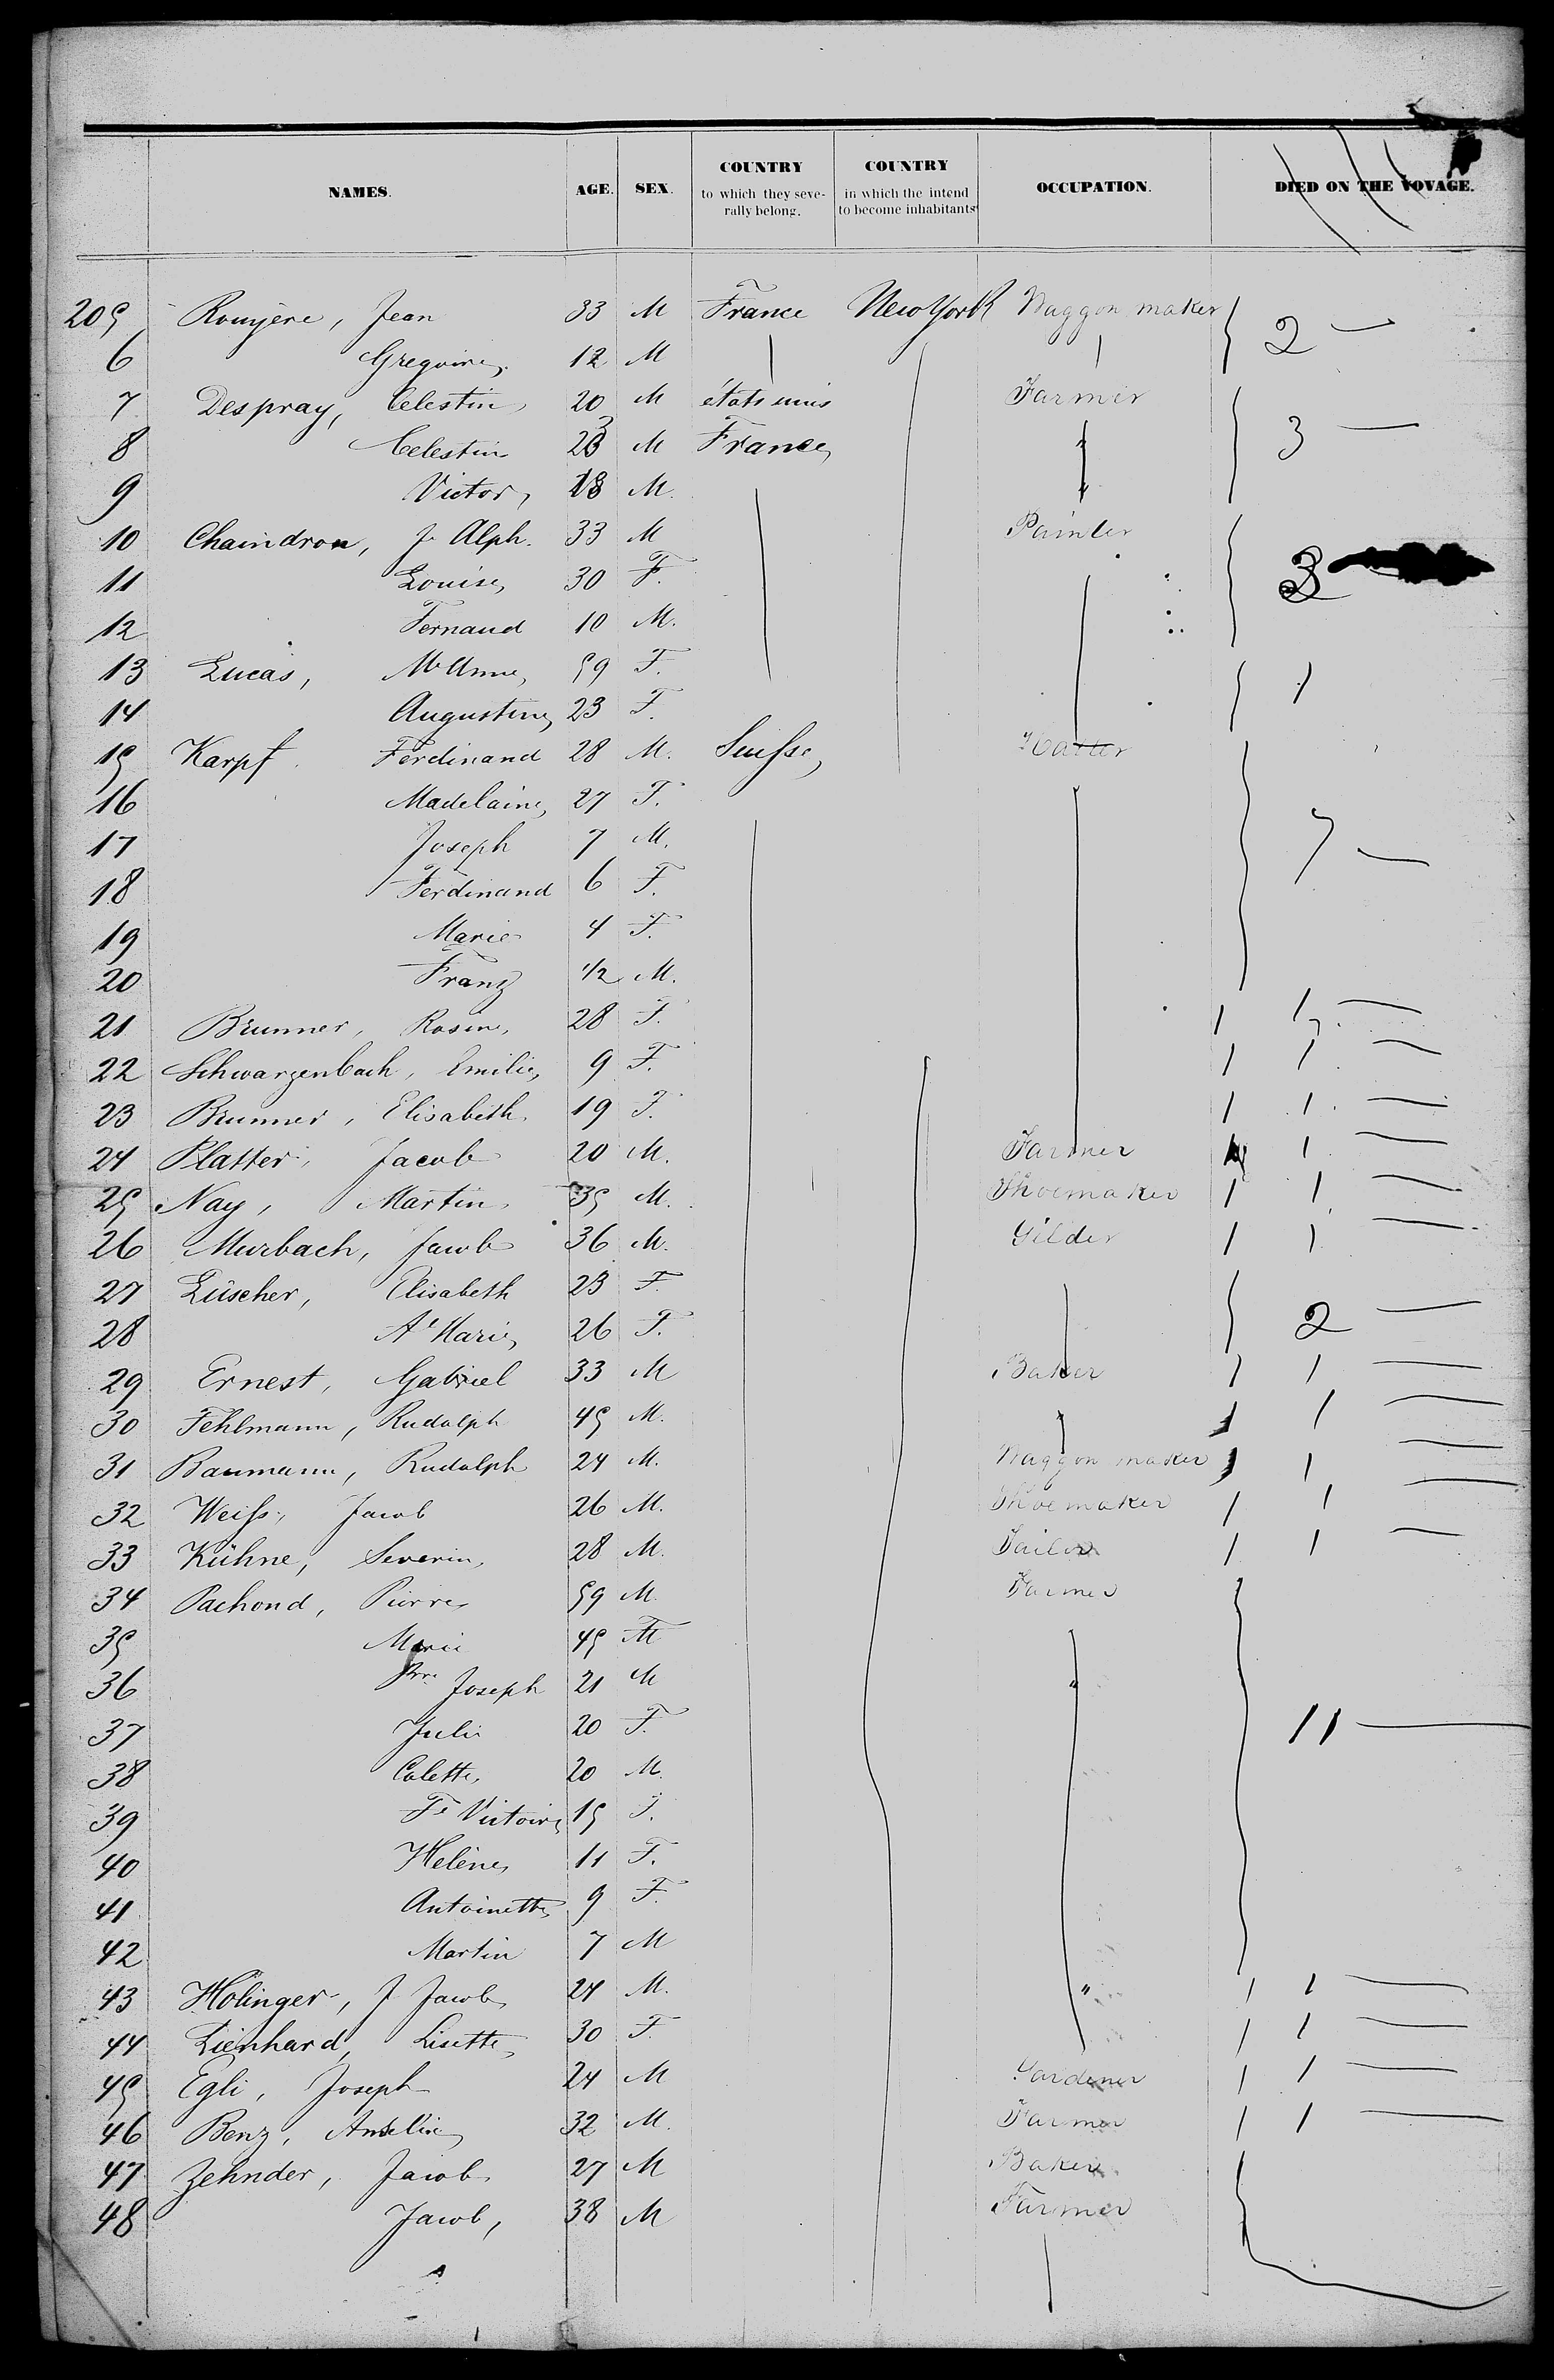 NAMES. AGE. SEX. COUNTRY to which they seve- rally belong. COUNTRY in which the intend to become inhabitants OCCUPATION. DIED ON THE VOYAGE.
205 Rouyère, Jean 33 M France New York Waggon maker 2 —
6 Gregoire 12 M
7 Despray, Celestin 20 M états unis Farmer 3 —
8 Celestin 23 M France "
9 Victor, 18 M. "
10 Chaindron, J. Alph. 33 M Painter 3
11 Louise, 30 F.
12 Fernand 10 M.
13 Lucas, Me Anne, 59 F. 1
14 Augustine, 23 F.
15 Karpf Ferdinand 28 M. Suisse, Hatter
16 Madelaine, 27 F.
17 Joseph 7 M. 7 —
18 Ferdinand 6 F.
19 Marie 4 F.
20 Franz 1/2 M.
21 Brunner, Rosine, 28 F. 1 1 —
22 Schwarzenbach, Emilie, 9 F. 1 1 —
23 Brunner, Elisabeth 19 F. 1 1 —
24 Platter, Jacob 20 M. Farmer 1 —
25 Nay, Martin 35 M. Shoemaker 1 1 —
26 Murbach, Jacob 36 M. Gilder 1 1 —
27 Lüscher, Elisabeth 23 F.
28 Ae Marie, 26 F. 2 —
29 Ernest, Gabriel 33 M Baker 1 1 —
30 Fehlmann, Rudolph 45 M. " 1 1 —
31 Baumann, Rudolph 24 M. Waggon maker 1 1 —
32 Weiss, Jacob 26 M. Shoemaker 1 1 —
33 Kühne, Severin, 28 M. Tailor 1 1 —
34 Pachond, Pierre 59 M. Farmer
35 Marie 45
36 Pre Joseph 21 M "
37 Julie 20 F. 11 —
38 Colette, 20 M.
39 Fe Victoire 15 F.
40 Helène, 11 F.
41 Antoinette, 9 F.
42 Martin 7 M
43 Hölinger, J. Jacob, 24 M. " 1 1 —
44 Lienhard, Lisette, 30 F. 1 1 —
45 Egli, Joseph 24 M Gardener 1 1 —
46 Benz, Anseline, 32 M. Farmer 1 1 —
47 Zehnder, Jacob 27 M Baker
48 Jacob, 38 M Farmer